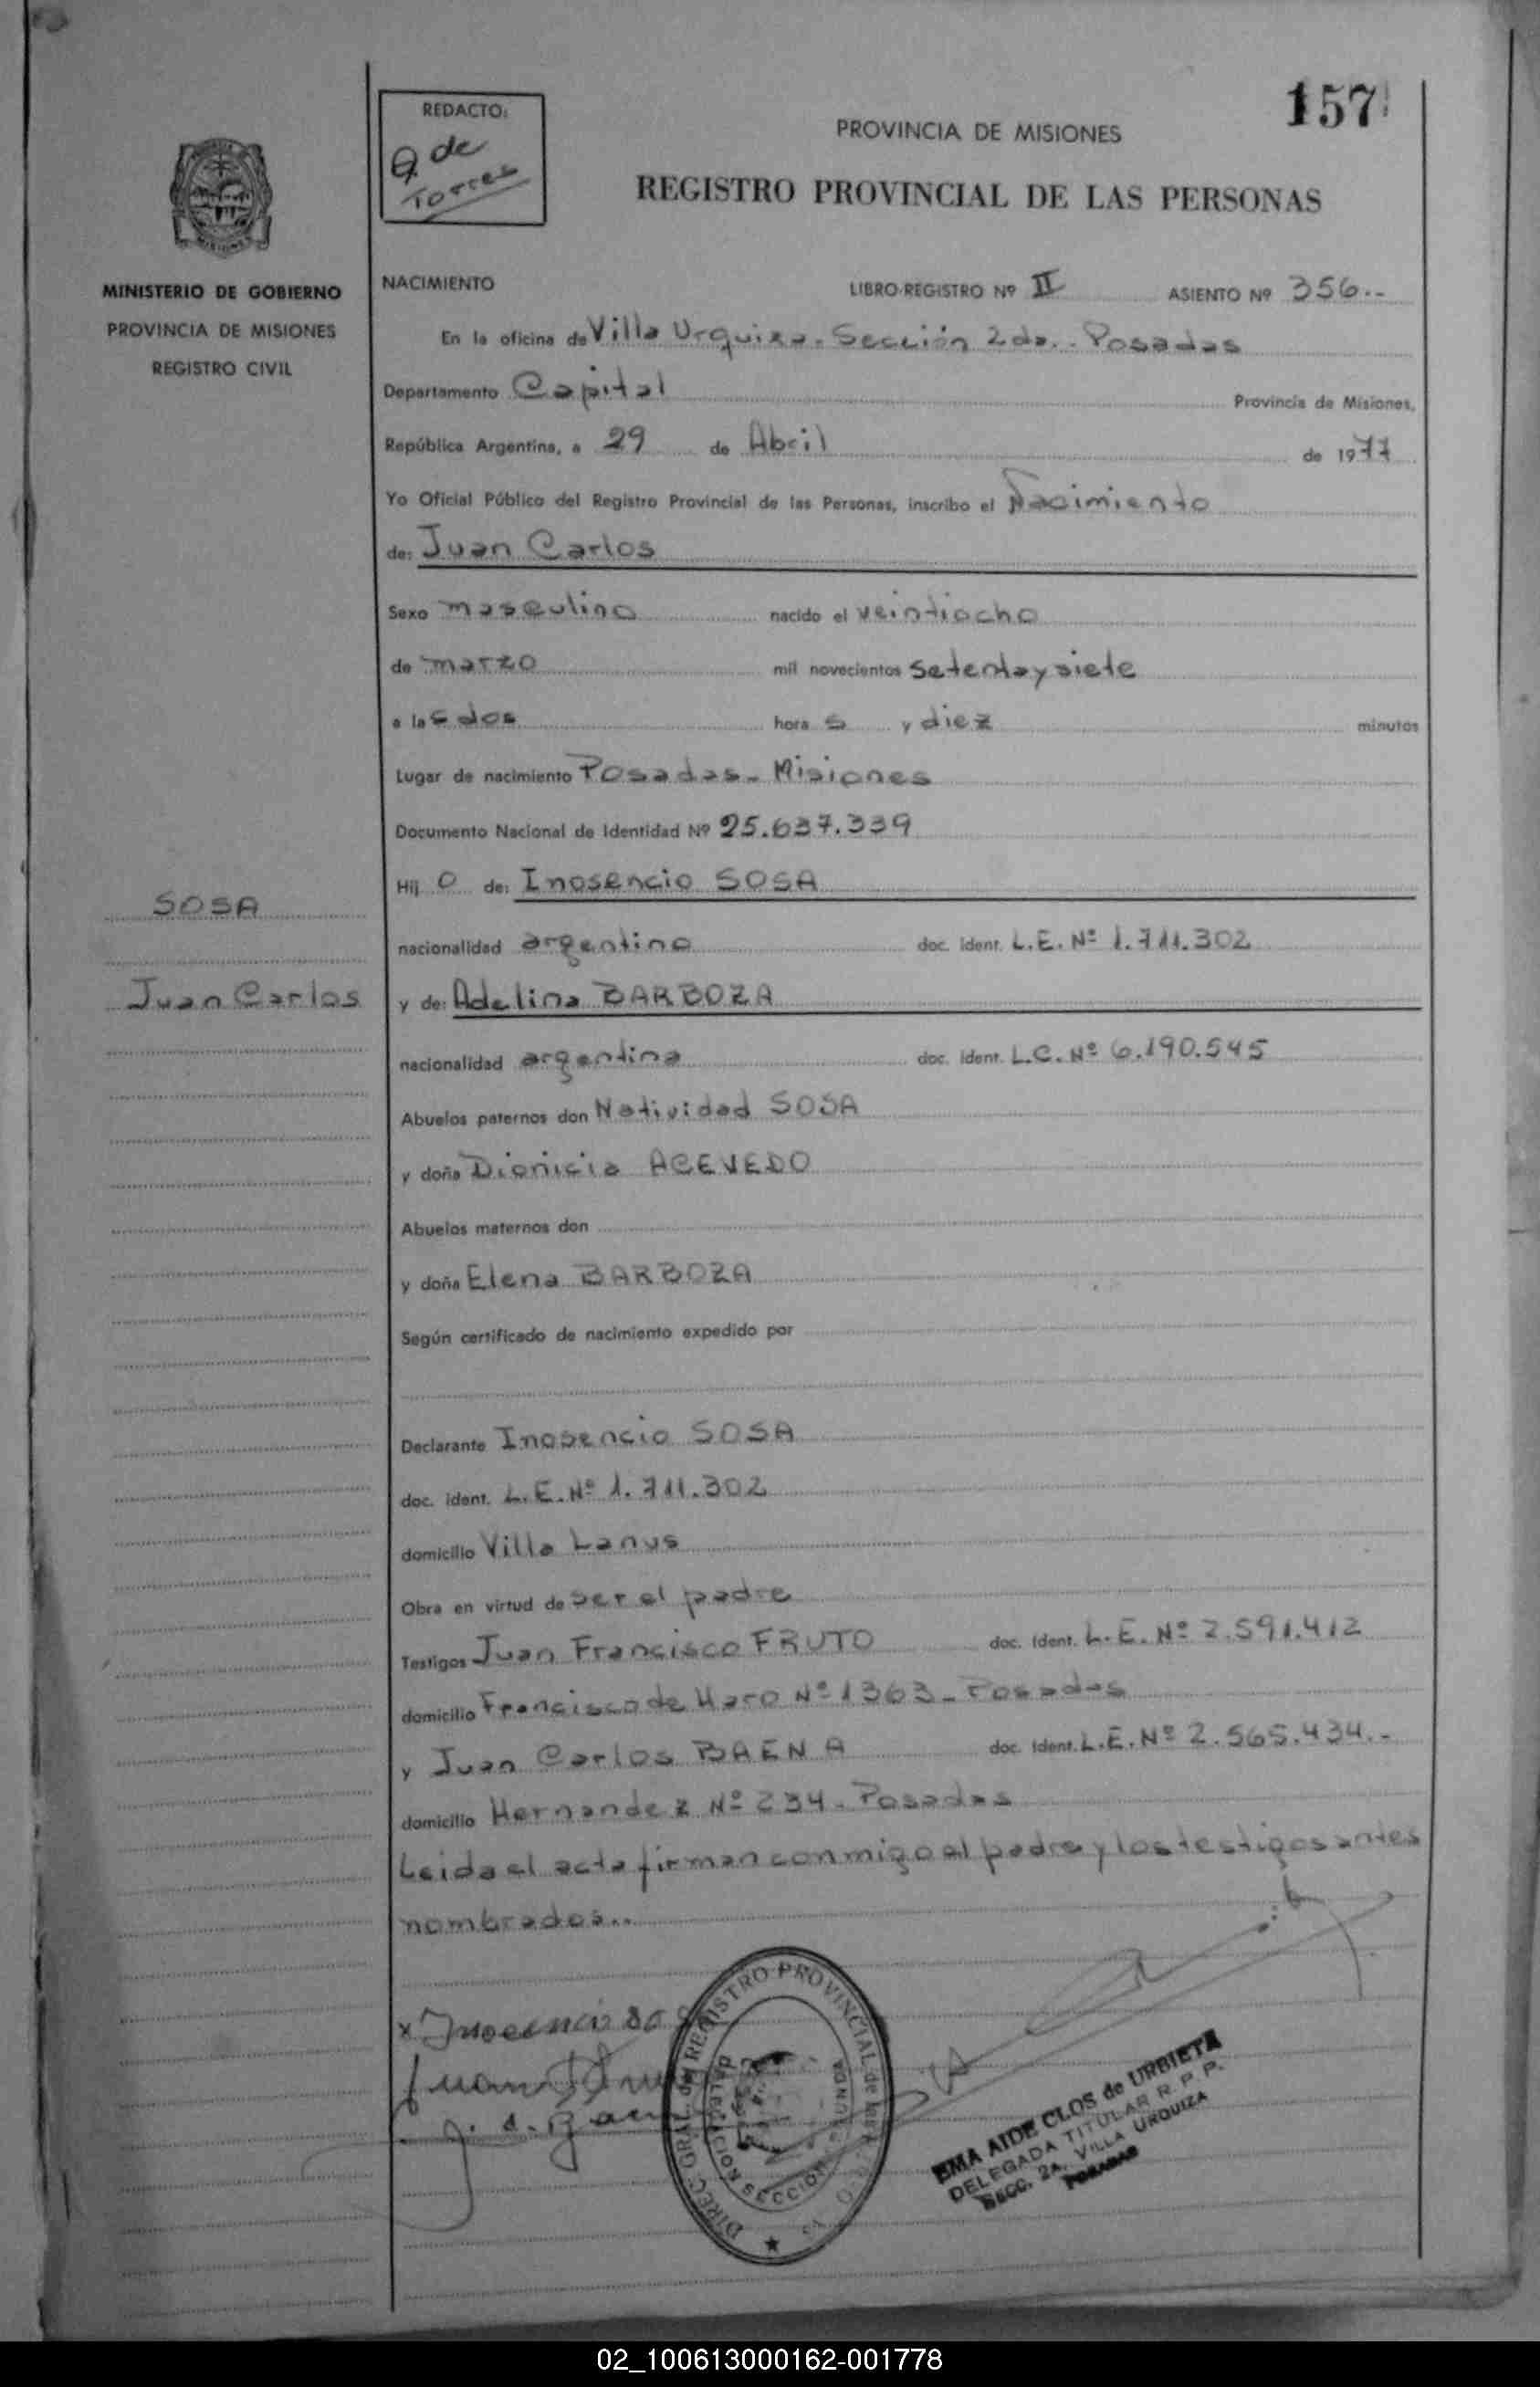 157
REDACTO:
Q de
Torres
PROVINCIA DE MISIONES
REGISTRO PROVINCIAL DE LAS PERSONAS
MISIONES
MINISTERIO DE GOBIERNO
PROVINCIA DE MISIONES
REGISTRO CIVIL
NACIMIENTO LIBRO-REGISTRO Nº II ASIENTO Nº 356.-
En la oficina de Villa Urquiza. Sección 2da.. Posadas
Departamento Capital Provincia de Misiones,
República Argentina, a 29 de Abril de 1977
Yo Oficial Público del Registro Provincial de las Personas, inscribo el Nacimiento
de: Juan Carlos
Sexo masculino nacido el veintiocho
de marzo mil novecientos setenta y siete
a las dos hora s y diez minutos
Lugar de nacimiento Posadas- Misiones
Documento Nacional de Identidad Nº 25.637.339
Hij o de: Inosencio SOSA
SOSA
nacionalidad argentino doc. ident. L.E. Nº 1.711.302
Juan Carlos
y de: Adelina BARBOZA
nacionalidad argentina doc. ident. L.C. Nº 6.190.545
Abuelos paternos don Natividad SOSA
y doña Dionicia ACEVEDO
Abuelos maternos don
y doña Elena BARBOZA
Según certificado de nacimiento expedido por
Declarante Inosencio SOSA
doc. ident. L.E. Nº 1.711.302
domicilio Villa Lanus
Obra en virtud de ser el padre
Testigos Juan Francisco FRUTO doc. ident. L.E. Nº 2.591.412
domicilio Francisco de Haro Nº 1363- Posadas
y Juan Carlos BAENA doc. ident. L.E. Nº 2.565.434.-
domicilio Hernandez Nº 234- Posadas
Leida el acta firman conmigo el padre y los testigos antes
nombrados..
x Inocencio
Juan
J. C. Baena
DIREC. GRAL. del REGISTRO PROVINCIAL de las
DELEGACION SECCION SEGUNDA
EMA AIDE CLOS de URBIETA
DELEGADA TITULAR R. P. P.
SECC. 2A. VILLA URQUIZA
POSADAS
02_100613000162-001778